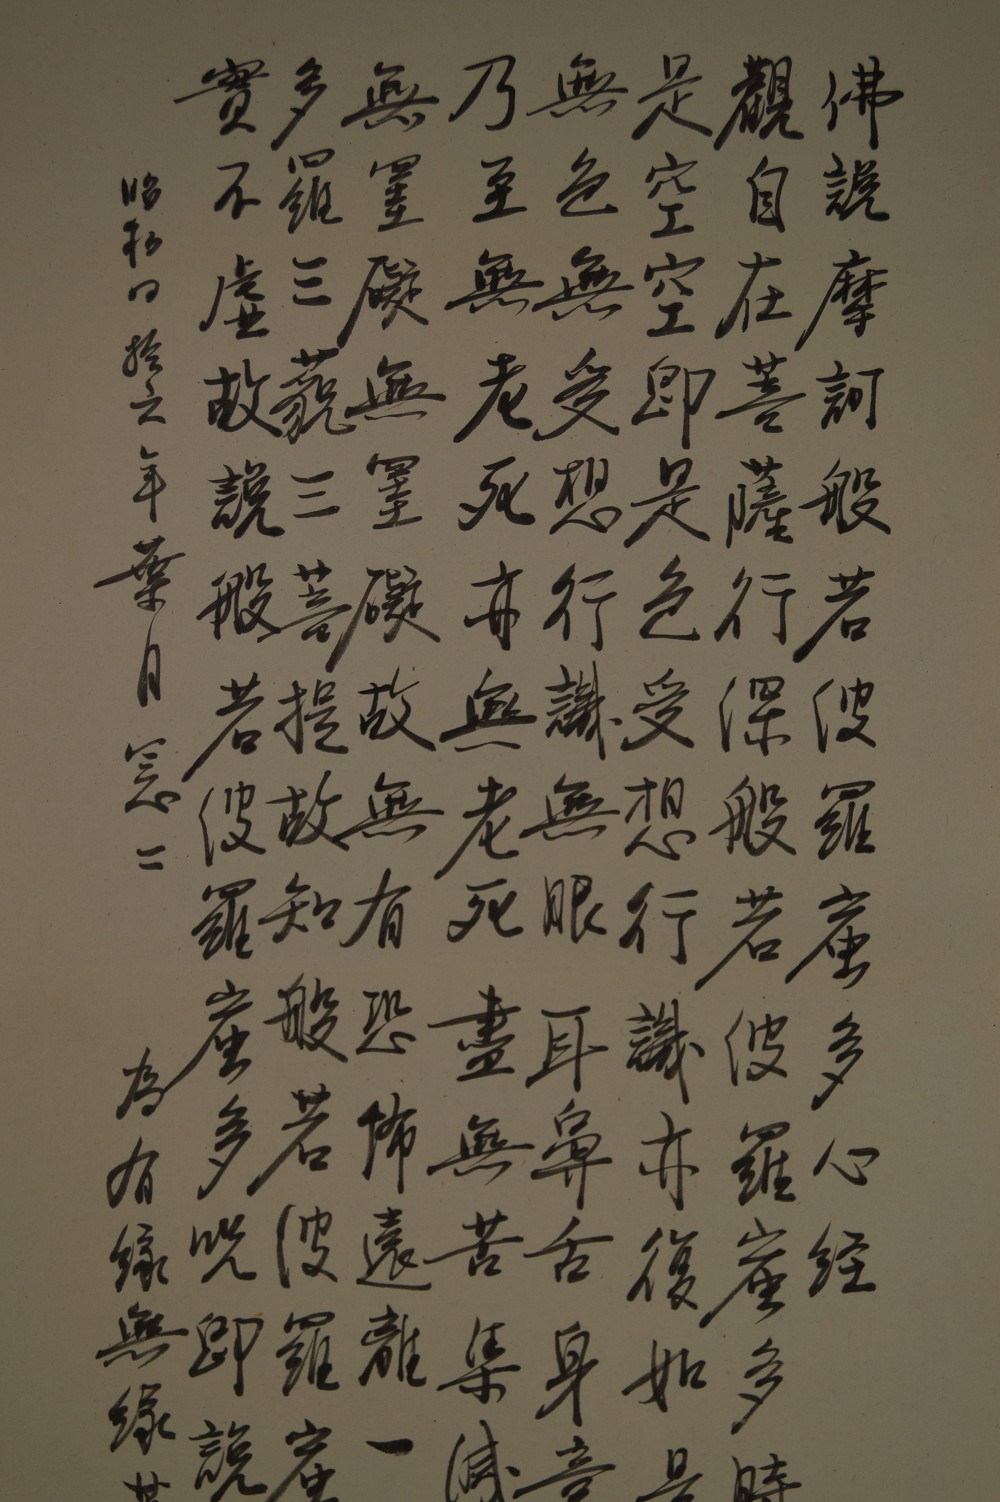 佛說摩訶般若波羅蜜多心経
觀自在菩薩行深般若波羅蜜多時
是空空即是色受想行識亦復如是
無色無受想行識無眼耳鼻舌身意
乃至無老死亦無老死盡無苦集滅
無罣礙無罣礙故無有恐怖遠離一
多羅三藐三菩提故知般若波羅蜜
實不虛故說般若波羅蜜多咒即說
昭和四拾六年葉月
為有緣無緣